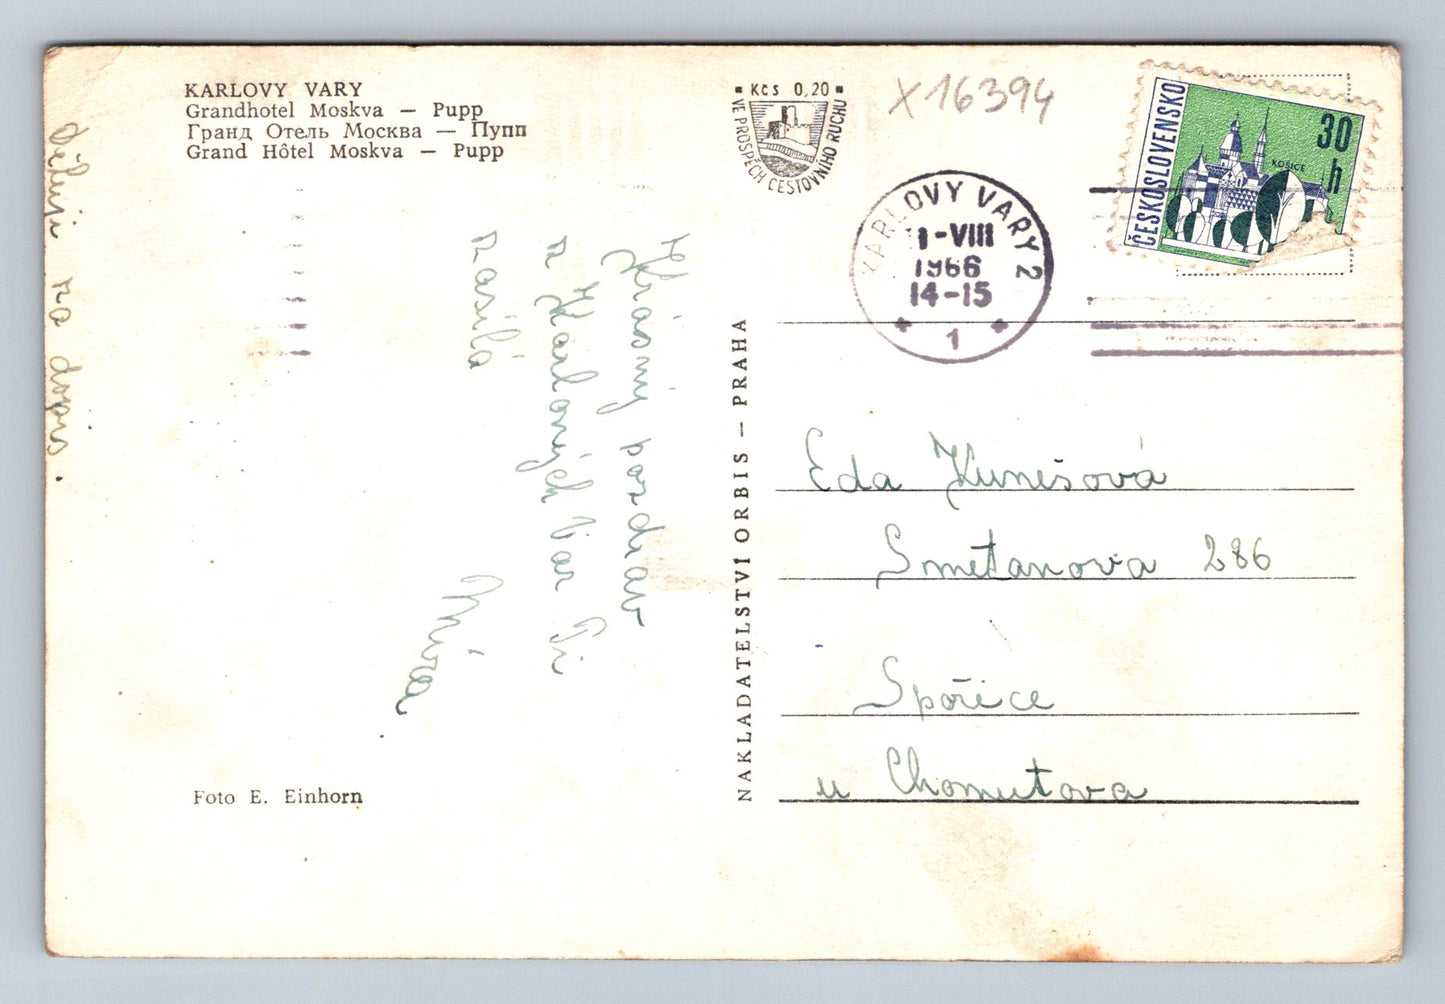 KARLOVY VARY
Grandhotel Moskva — Pupp
Гранд Отель Москва — Пупп
Grand Hôtel Moskva — Pupp
Děkuji za dopis.
Krásný pozdrav
z Karlových Var Ti
zasílá
Míra
Foto E. Einhorn
NAKLADATELSTVÍ ORBIS — PRAHA
Kčs 0,20
VE PROSPĚCH CESTOVNÍHO RUCHU
X16394
KARLOVY VARY 2
1-VIII
1966
14-15
1
ČESKOSLOVENSKO
30
h
KOŠICE
Eda Kunešová
Smetanova 286
Spořice
u Chomutova